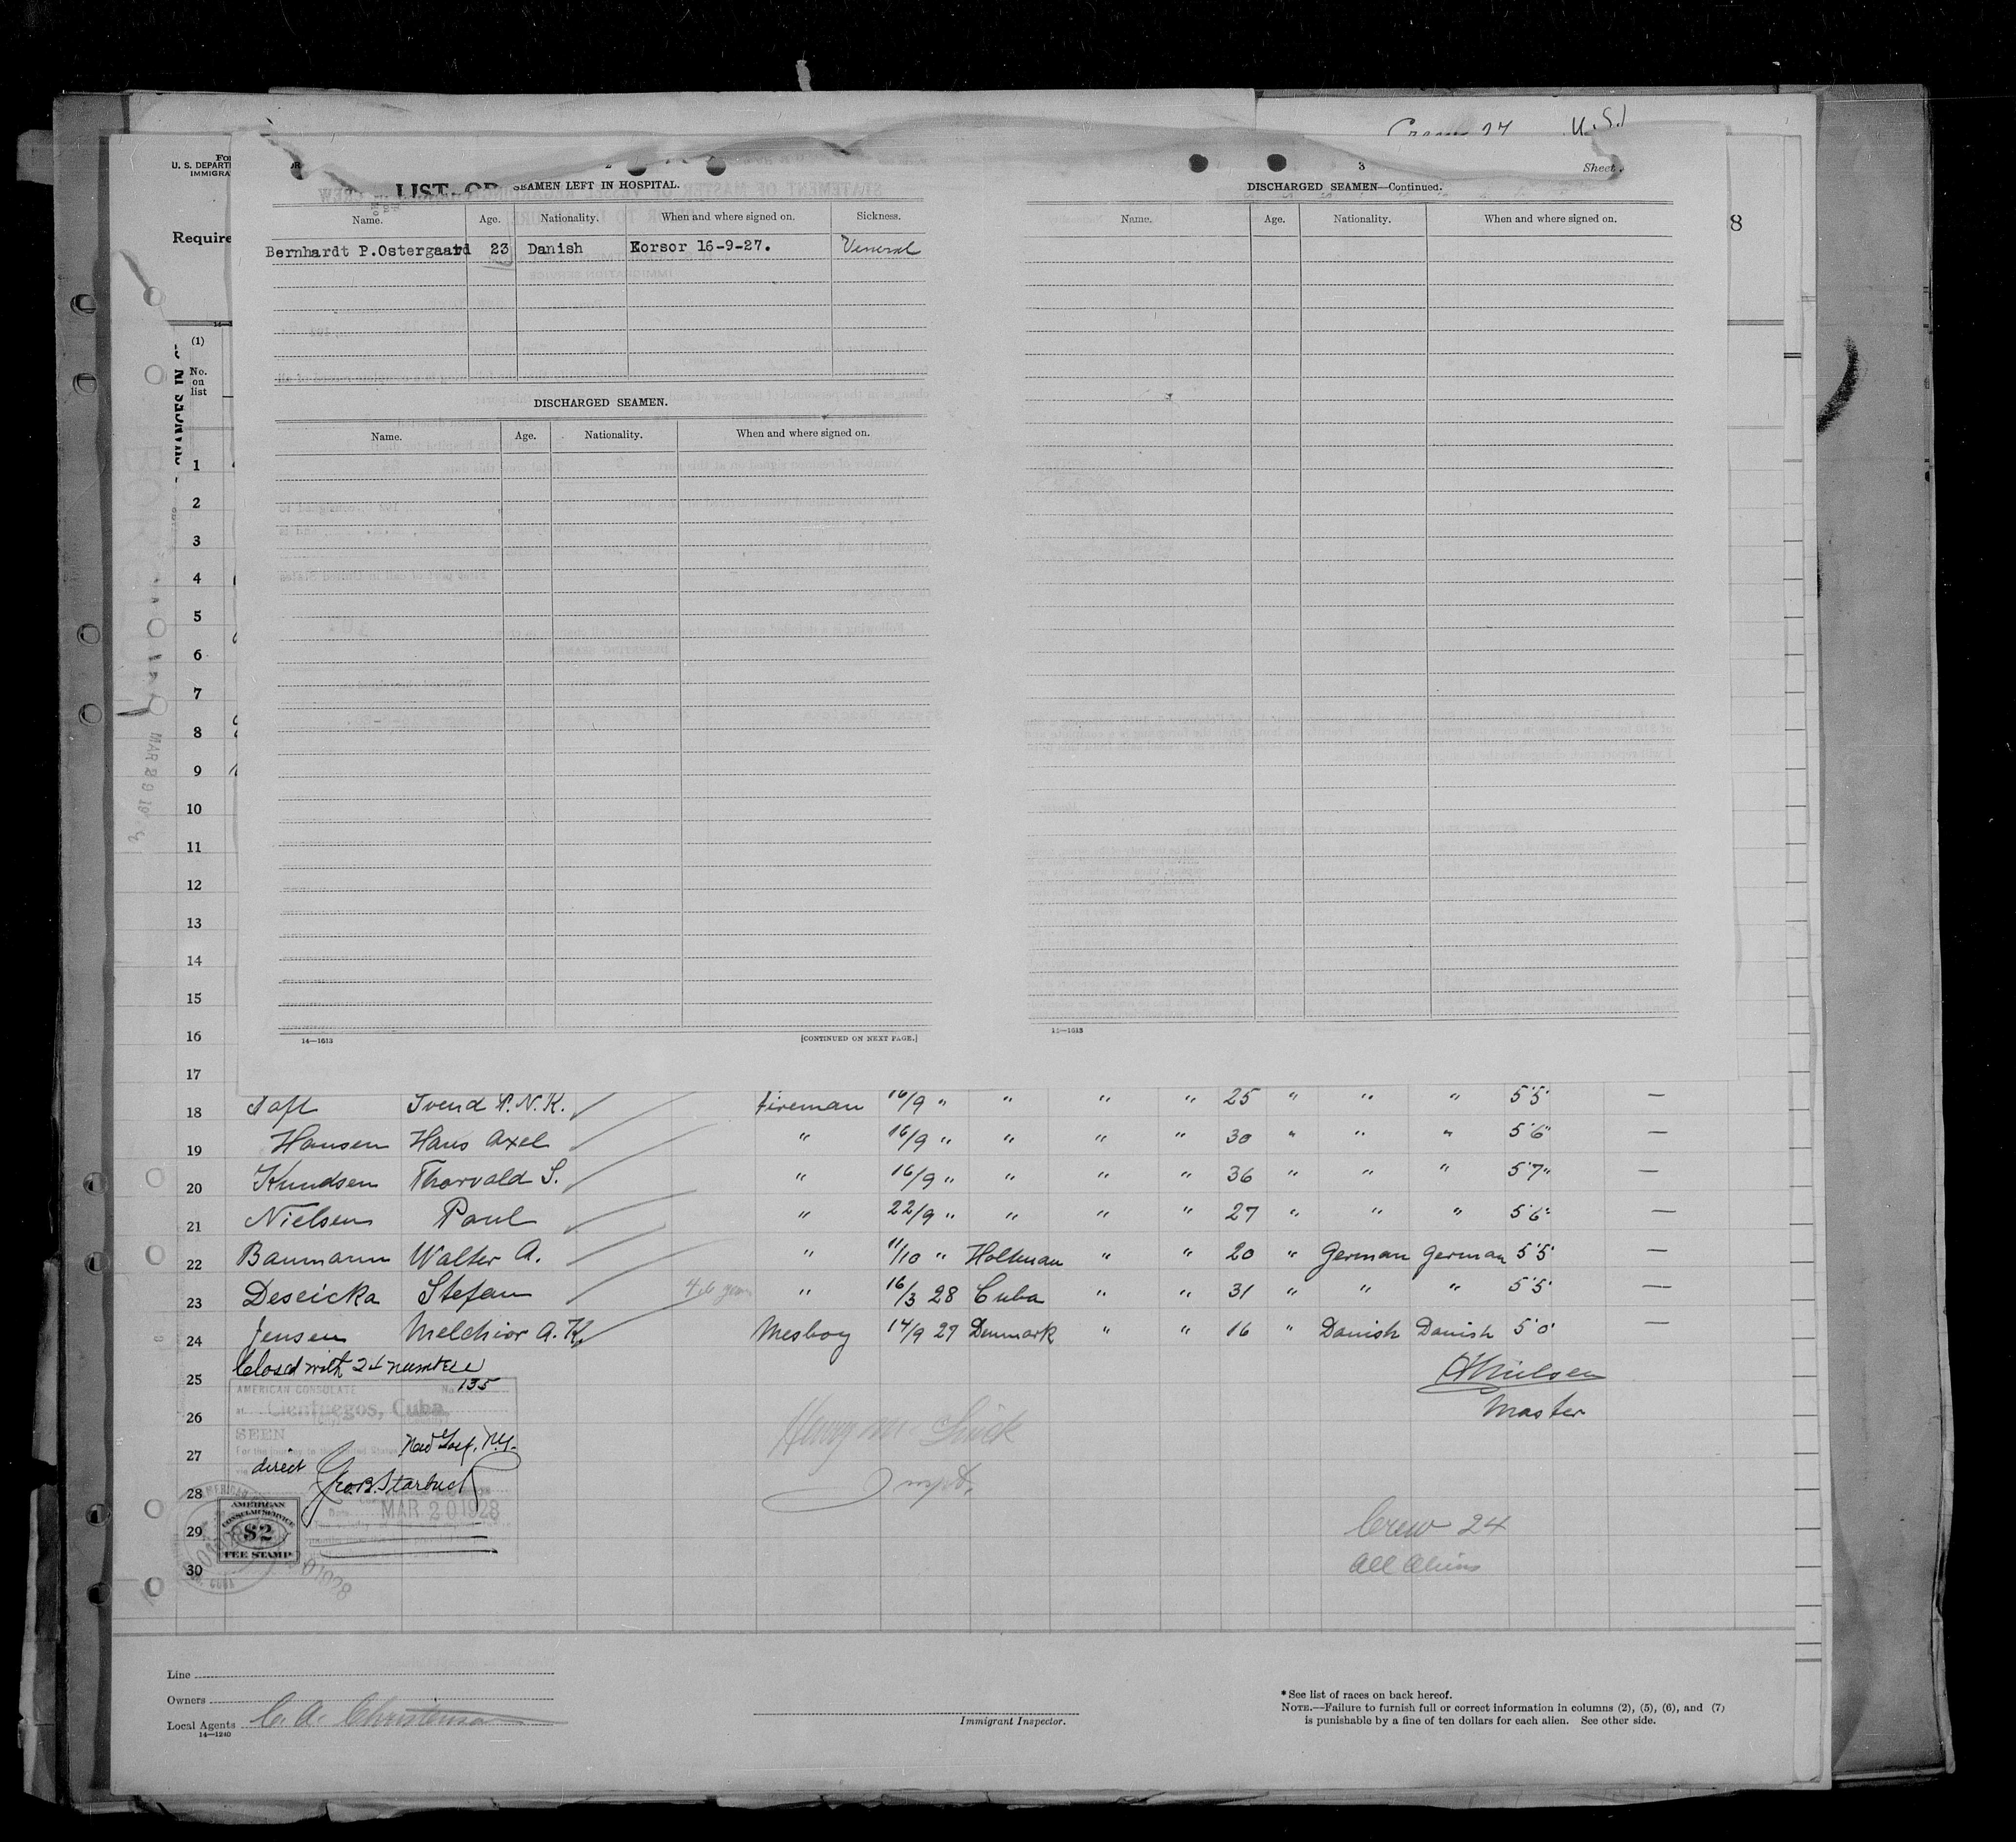 Crew 24 U.S.
Sheet
U. S. DEPART
IMMIGRA
LIST OF
Require
8
2
SEAMEN LEFT IN HOSPITAL.
Name. Age. Nationality. When and where signed on. Sickness.
Bernhardt P.Ostergaard 23 Danish Korsor 16-9-27. Veneral
DISCHARGED SEAMEN.
Name. Age. Nationality. When and where signed on.
14—1613
[CONTINUED ON NEXT PAGE.]
3
DISCHARGED SEAMEN—Continued.
Name. Age. Nationality. When and where signed on.
14—1613
(1)
No. on list
1
2
3
4
5
6
7
8
9
10
11
12
13
14
15
16
17
18 Toft Svend P. N. K. Fireman 16/9 " " " " 25 " " " 5'5" —
19 Hansen Hans Axel " 16/9 " " " " 30 " " " 5'6" —
20 Knudsen Thorvald S. " 16/9 " " " " 36 " " " 5'7" —
21 Nielsen Paul " 22/9 " " " " 27 " " " 5'6" —
22 Baumann Walter A. " 11/10 " Holtenau " " 20 " German German 5'5" —
23 Deseicka Stefan " 16/3 28 Cuba " " 31 " " " 5'5" —
24 Jensen Melchior A. K. Mesboy 14/9 27 Denmark " " 16 " Danish Danish 5'0" —
25 Closed with 24 numbers
26
27
28
29
30
AMERICAN CONSULATE No. 135
at Cienfuegos, Cuba
SEEN
For the journey to the United States
New York, N.Y.
direct
Geo. B. Starbuck
Date MAR 20 1928
AMERICAN
CONSULAR SERVICE
$2
FEE STAMP
Nielsen
Master
Henry M.
Inspt.
Crew 24
All Aliens
Line
Owners
Local Agents C. A. Christensen
14—1240
Immigrant Inspector.
* See list of races on back hereof.
NOTE.—Failure to furnish full or correct information in columns (2), (5), (6), and (7)
is punishable by a fine of ten dollars for each alien. See other side.